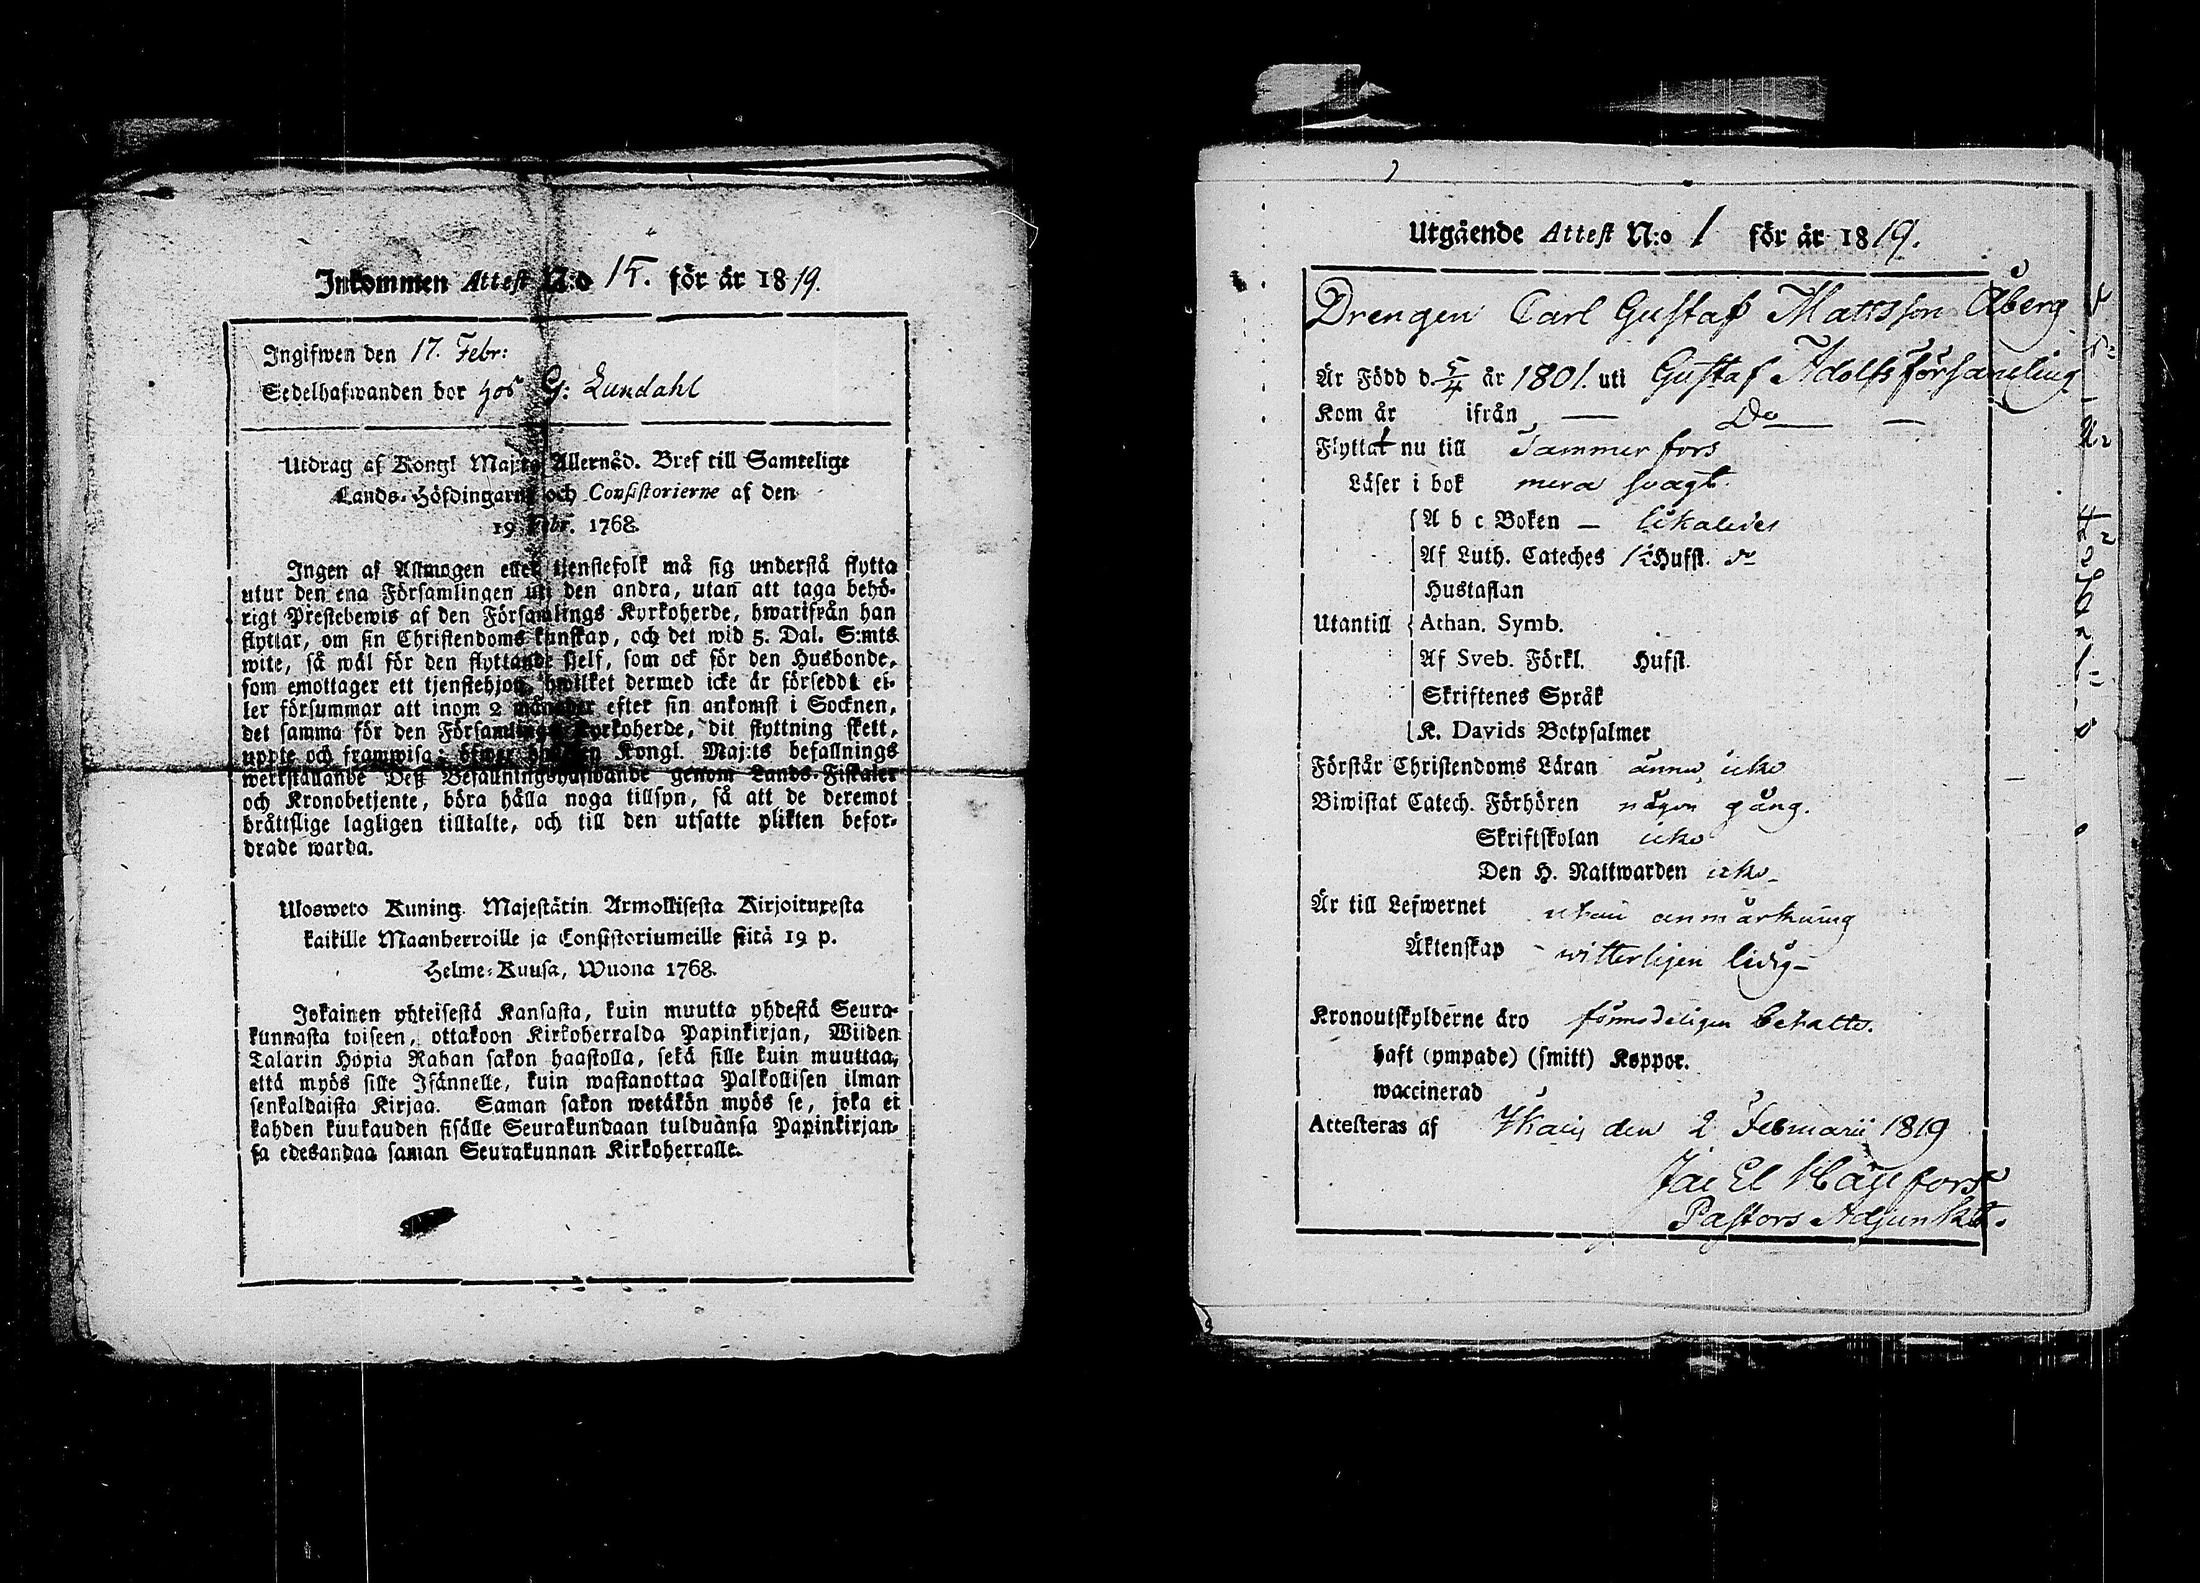 Inkommen Attest N:o 15. för år 1819.
Ingifwen den 17. Febr:
Sedelhafwanden bor hos G: Lundahl
Utdrag af Kongl Maj:ts Allernåd. Bref till Samtelige
Lands-Höfdingarne och Consistorierne af den
19 Febr. 1768.
Ingen af Allmogen eller tjenstefolk må sig understå flytta
utur den ena Församlingen uti den andra, utan att taga behö-
rigt Prestebewis af den Församlings Kyrkoherde, hwarifrån han
flyttar, om sin Christendoms kunskap, och det wid 5. Dal. S:mts
wite, så wäl för den flyttande sjelf, som ock för den Husbonde,
som emottager ett tjenstehjon, hwilket dermed icke är försedd: el-
ler försummar att inom 2 månader efter sin ankomst i Socknen,
det samma för den Församlings Kyrkoherde, dit flyttning skett,
uppte och framwisa; öfwer hwilken Kongl. Maj:ts befallnings
werkställande Deß Befallningshafwande genom Lands-Fiskaler
och Kronobetjente, böra hålla noga tillsyn, så att de deremot
bråttslige lagligen tilltalte, och till den utsatte plikten befor-
drade warda.
Uloswero Kuning. Majestätin Armollisesta Kirjoituxesta
kaikille Maanherroille ja Consistoriumeille siitä 19 p.
Helme-Kuusa, Wuona 1768.
Jokainen yhteisestä Kansasta, kuin muutta yhdestä Seura-
kunnasta toiseen, ottakoon Kirkoherralda Papinkirjan, Wiiden
Talarin Hopia Rahan sakon haastolla, sekä sille kuin muuttaa,
että myös sille Isännelle, kuin wastanottaa Palkollisen ilman
senkaldaista Kirjaa. Saman sakon wetäkön myös se, joka ei
kahden kuukauden sisälle Seurakundaan tulduansa Papinkirjan-
sa edesandaa saman Seurakunnan Kirkoherralle.
Utgående Attest N:o 1 för år 1819.
Drengen Carl Gustaf Mattsson Åberg
Är Född d. 5/4 år 1801. uti Gustaf Adolfs församling
Kom år ifrån — Do —
Flyttat nu till Tammerfors
Läser i bok mera svagt.
A b c Boken — likaledes
Af Luth. Cateches 1½ Hufst. do
Hustaflan
Utantill Athan. Symb.
Af Sveb. Förkl. Hufst.
Skriftenes Språk
K. Davids Botpsalmer
Förstår Christendoms Läran ännu icke
Biwistat Catech. Förhören någon gång.
Skriftskolan icke
Den H. Nattwarden icke
Är till Lefwernet utan anmärkning
Äktenskap witterligen ledig
Kronoutskylderne äro förmodeligen betalte.
haft (ympade) (smitt) Koppor.
waccinerad
Attesteras af den 2 Februarii 1819
Hägfors
Pastors Adjunkt.